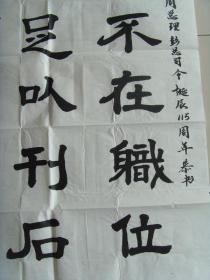 周总理彭总司令诞辰115周年恭书
不在職位
足以刊石